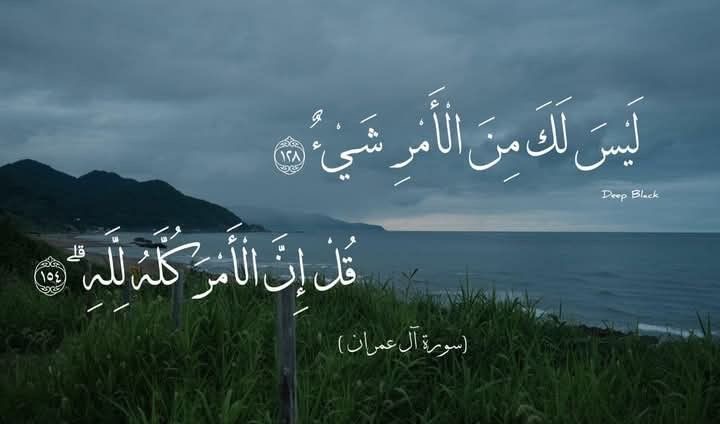 لَيْسَ لَكَ مِنَ الْأَمْرِ شَيْءٌ ١٢٨
Deep Black
قُلْ إِنَّ الْأَمْرَ كُلَّهُ لِلَّهِ ۗ ١٥٤
(سورة آل عمران)